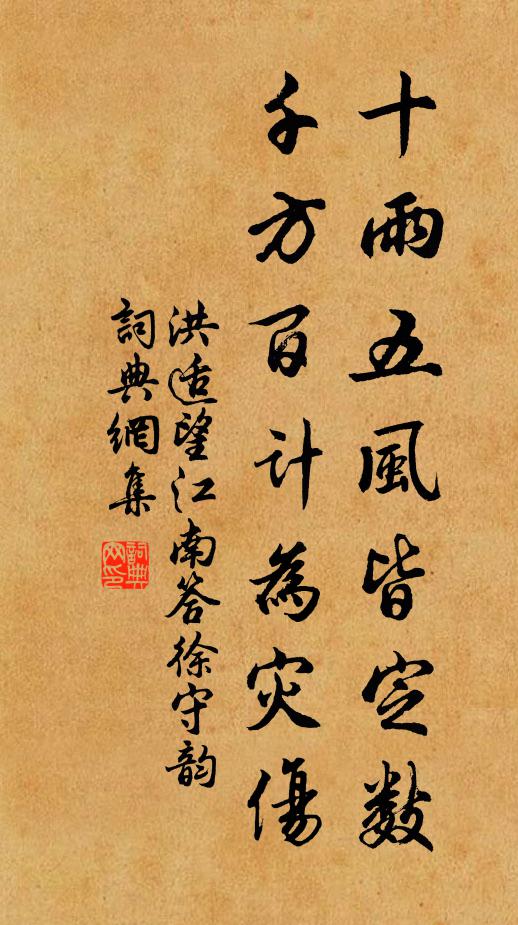 十雨五風皆定數
千方百计為灾傷
洪适望江南答徐守韵
詞典網集
詞典網印